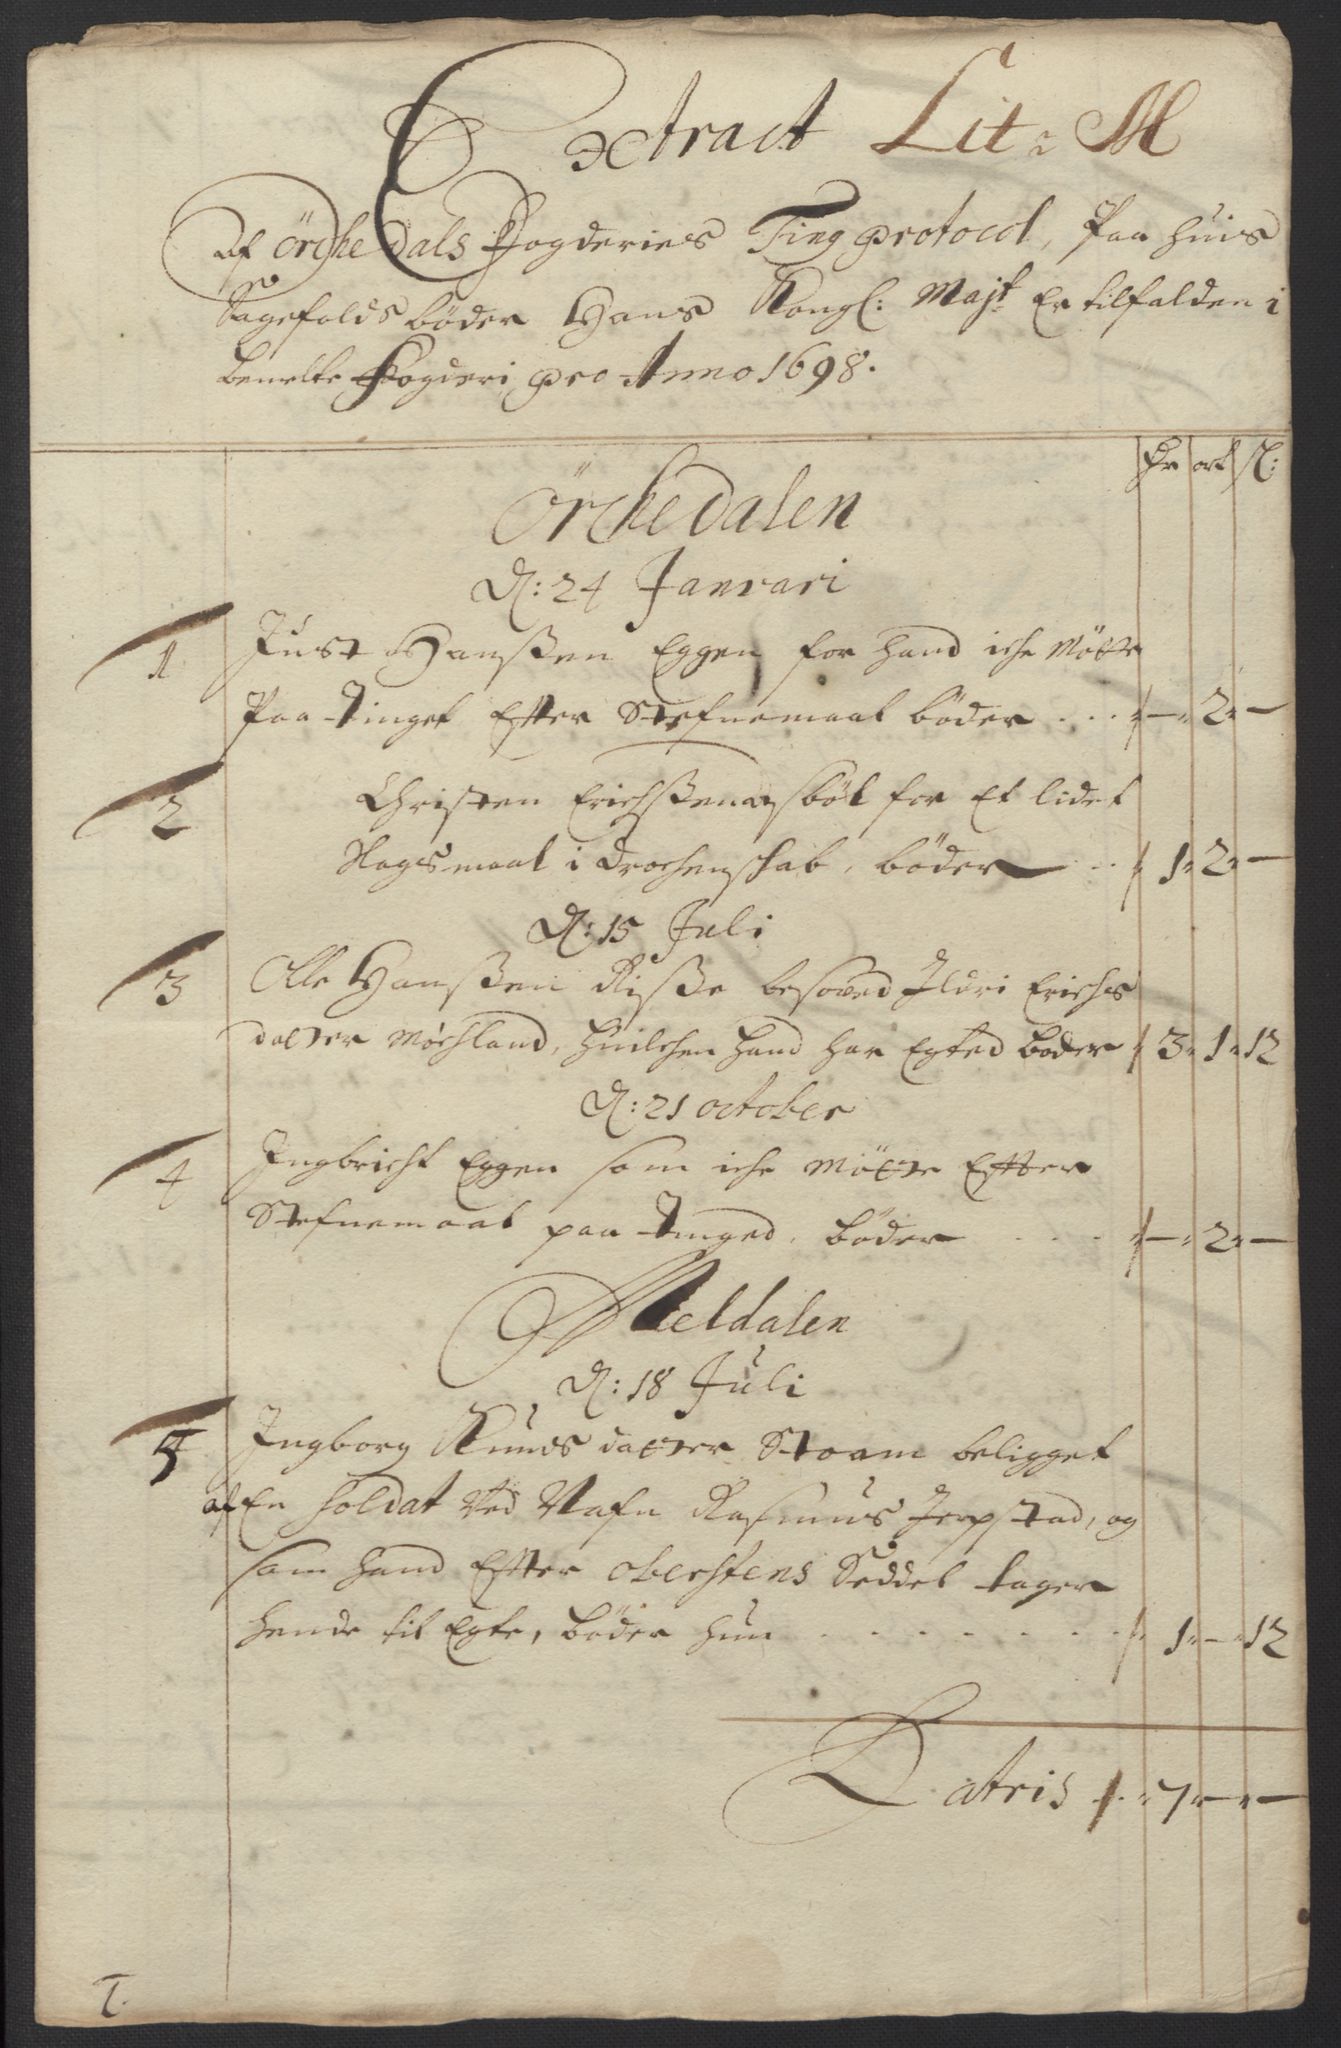 Extract Lit: M
Af Örchedals Fogderies Ting protocol, Paa huis
Sagefalds böder Hans Kongl: Majt Er tilfalden i
benelte Fogderi pro Anno 1698.
Dr ort sl:
Örchedalen
D: 24 Januari
1 Just Hanßen Eggen for hand iche Mötte
Paa Tinget Effter Stefnemaal böder ... — 2 —
2 Christen Erichßen for Et lidet
Slagsmaal i Drochenschab, böder .. 1 2 —
D: 15 Juli
3 Olle Hanßen Riße besofved Ildri Erichs
datter Møchland, huilchen hand har Egted böder 3 1 12
D: 21 october
4 Ingbricht Eggen som iche Mötte Effter
Stefnemaal paa Tinged, böder ... — 2 —
Meldalen
D: 18 Juli
5 Ingborg Knuds datter Stoam beligget
af En Soldat Ved Nafn Rasmus Jerpstad, og
som hand Effter oberstens Seddel tager
hende til Egte, böder hun ........ 1 — 12
Latris 7 — —
T.